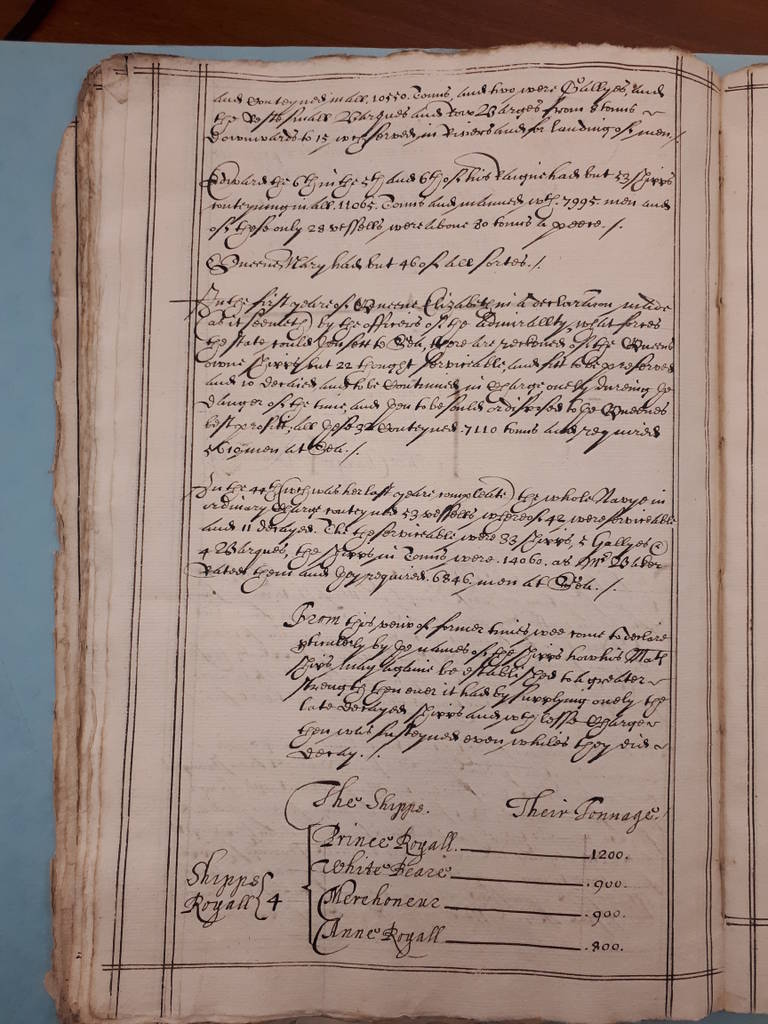 and conteyned in all .10550. Tonns, and two were Gallyes, and
the Rest small Barques and row Barges from 8 tonns
downwards to 15 wch served in Rivers and for landing of men /.
Edward the 6th in the 5th and 6th of his Raigne had but 53 shipps
conteyning in all .11065. Tonns and manned wth .7995 men and
of these only 28 vessells were above 80 tonns a peece. /.
Queene Mary had but 46 of all sortes. /.
In the first yeare of Queene Elizabeth in a declaration made
(as it seemeth) by the officers of the Admirallty, what forces
the state could then sett to Sea, there are reckoned of the Queens
owne shipps but 22 thought serviceable, and fitt to be preserved
and 10 decaied, and to be Continued in Charge onely dureing the
danger of the time, and then to be sould or disposed to the Queenes
best profitt; all these 32 Conteyned .7110 tonns and required
5610 men at Sea. /.
In the 44th (wch was her last yeare compleate) the whole Navye in
ordinary Charge conteyned 53 vessells whereof 42 were serviceable
and 11 decayed. The the serviceable were 33 shipps, 5 Gallyes &
4 Barques, the shipps in Tonns were .14060. as Mr Baker
Rated them and they required .6846. men at Sea. /.
From this veiw of former times wee come to declare
pticulerly by the names of the shipps how his Mats
shipps may againe be established to a greater
strength then ever it had by supplying onely the
late decayed shipps and wth lesse Charge
then was susteyned even whiles they did
decay. /.
The Shippe. Their Tonnage.
Shipps Royall 4
Prince Royall. 1200.
White Beare .900.
Merehoneur .900.
Anne Royall .800.